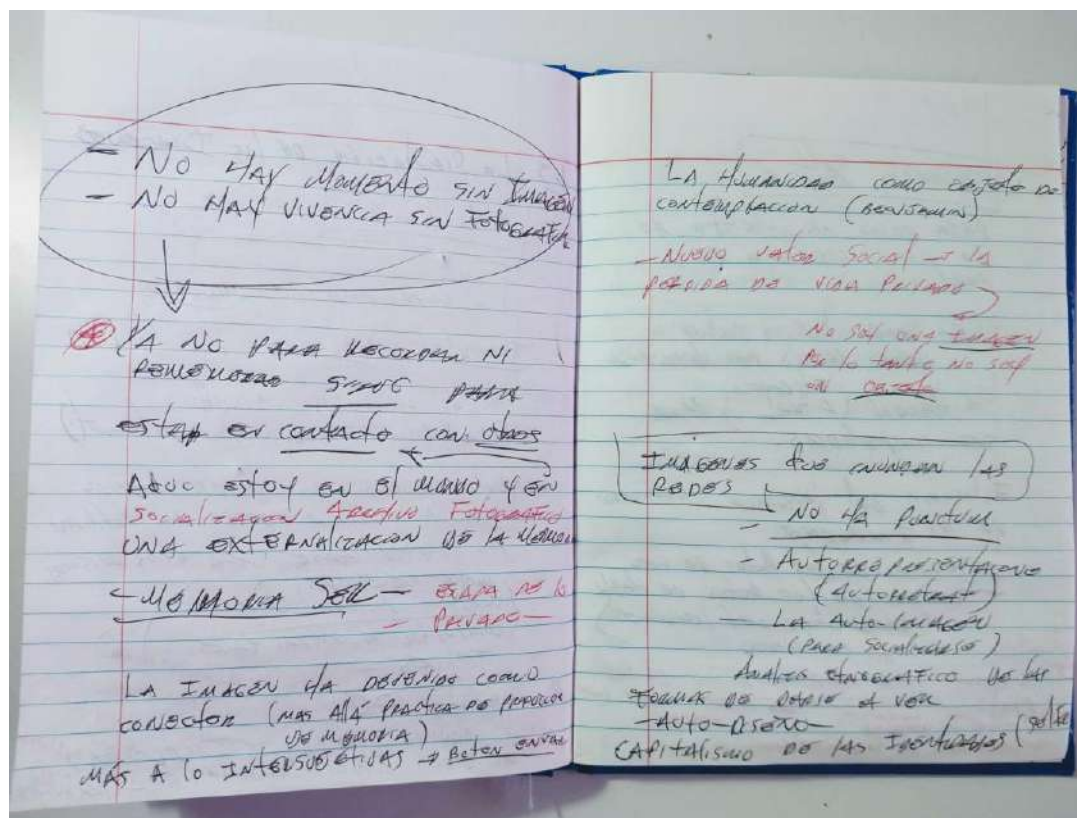 - NO HAY MOMENTO SIN IMAGEN
- NO HAY VIVENCIA SIN FOTOGRAFIA
YA NO PARA RECORDAR NI
REMEMORAR SINO PARA
estar en contacto con otros
estoy en el mundo y en
Socialización Archivo Fotografico
UNA EXTERNALIZACION DE LA MEMORIA
- MEMORIA SELL - ERA DE lo
- PRIVADO -
LA IMAGEN HA DEVENIDO COMO
CONECTOR (MAS ALLÁ PRACTICA DE PRODUCCION
DE MEMORIA)
MÁS A lo INTERSUBJETIVAS → BOTON ENVIAR
LA HUMANIDAD COMO OBJETO DE
CONTEMPLACCION (BENJAMIN)
- NUEVO VALOR SOCIAL → LA
PERDIDA DE VIDA PRIVADA
NO SOY UNA IMAGEN
Por lo tanto NO SOY
UN OBJETO
IMAGENES QUE INUNDAN LAS
REDES
- NO HA PUNCTUM
- AUTORREPRESENTACIONE
(Autorretrato)
- LA AUTO-IMAGEN
(PARA Socializarse)
ANALISIS ETNOGRAFICO DE LAS
FORMAS DE DARSE A VER
- AUTO-DISEÑO -
CAPITALISMO DE LAS IDENTIDADES (selfie